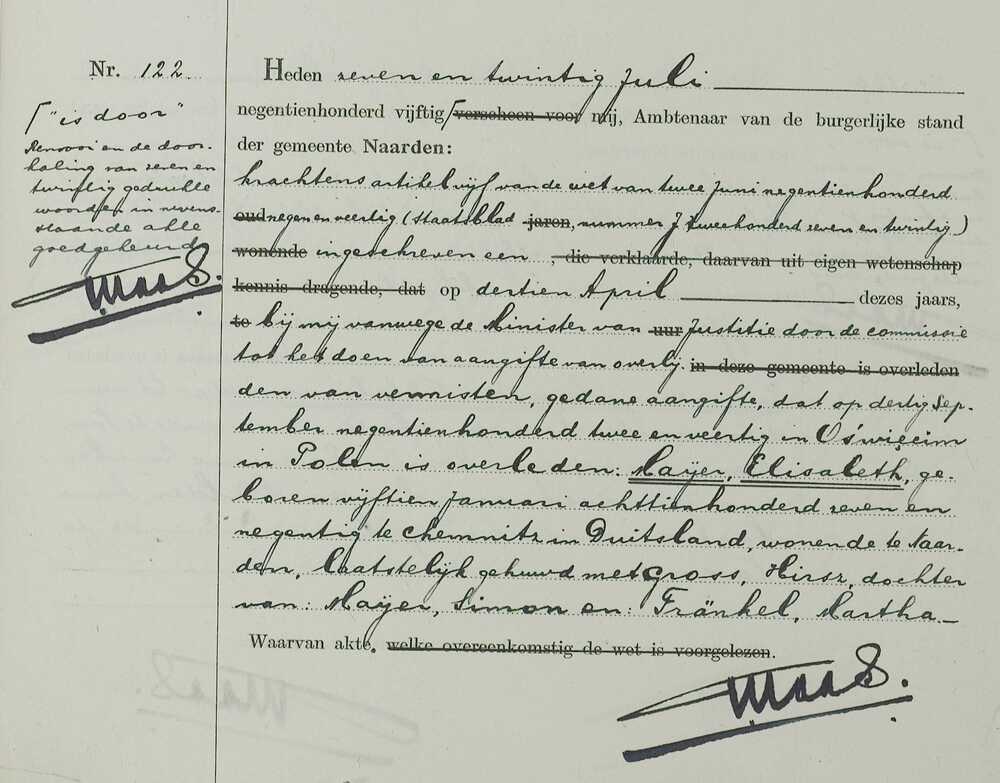 Nr. 122.
Heden zeven en twintig Juli
negentienhonderd vijftig ⌈verscheen voor mij, Ambtenaar van de burgerlijke stand
der gemeente Naarden:
krachtens artikel vijf van de wet van twee Juni negentienhonderd
oud negen en veertig (Staatsblad jaren, nummer J tweehonderd zeven en twintig)
wonende ingeschreven een , die verklaarde, daarvan uit eigen wetenschap
kennis dragende, dat op dertien April dezes jaars,
te bij mij vanwege de Minister van uur Justitie door de commissie
tot het doen van aangifte van overlij- in deze gemeente is overleden
den van vermisten, gedane aangifte, dat op dertig Sep-
tember negentienhonderd twee en veertig in Oświęcim
in Polen is overleden: Maijer, Elisabeth, ge-
boren vijftien Januari achttienhonderd zeven en
negentig te Chemnitz in Duitsland, wonende te Naar-
den, laatstelijk gehuwd met Gross, Hirsz, dochter
van: Maijer, Simon en: Fränkel, Martha.—
Waarvan akte, welke overeenkomstig de wet is voorgelezen.
Maas.
⌈"is door"
Renvooi en de door-
haling van zeven en
twintig gedrukte
woorden in nevens-
staande akte
goedgekeurd
Maas.